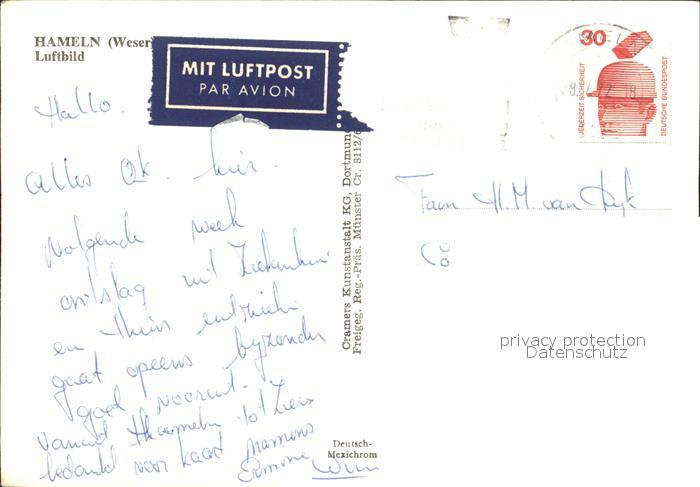 HAMELN (Weser)
Luftbild
MIT LUFTPOST
PAR AVION
30
JEDERZEIT SICHERHEIT
DEUTSCHE BUNDESPOST
Hallo.
alles OK. hier.
Volgende week
ontslag uit Ziekenhuis
en thuis
gaat opeens byzonder
goed vooruit.
vanuit Haarneln tot Ziens
bedankt voor kaart namens
Wim
Fam H.M. van Dyk
Cramers Kunstanstalt KG, Dortmund
Freigeg. Reg.-Präs. Münster Cr. 3112/6
Deutsch-
Mexichrom
privacy protection
Datenschutz